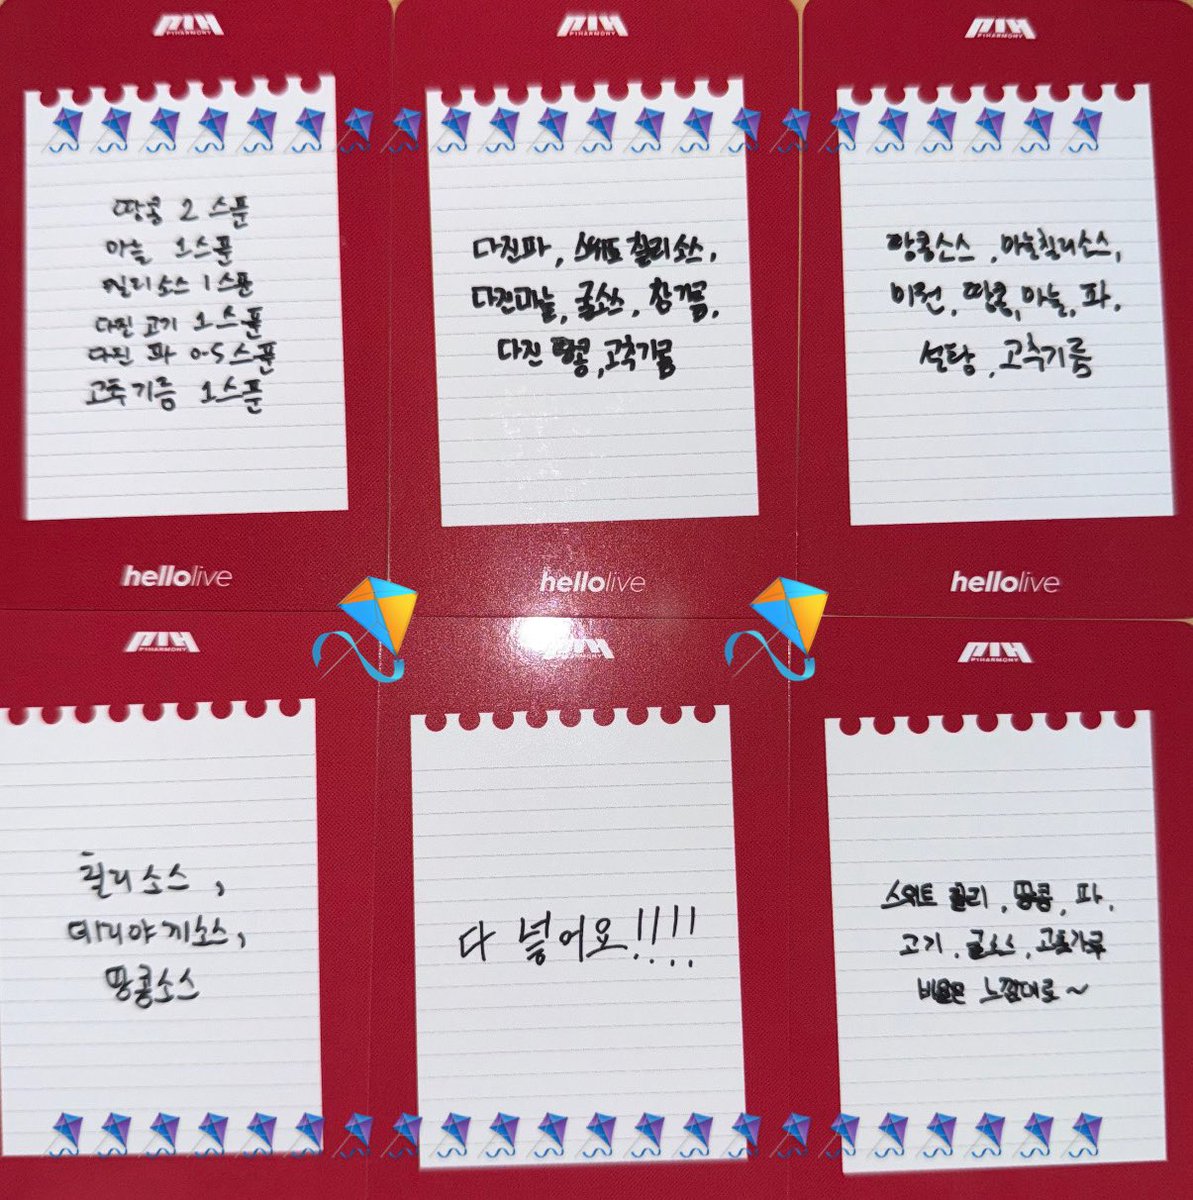 PIH
P1HARMONY
땅콩 2 스푼
마늘 1스푼
칠리소스 1스푼
다진 고기 1스푼
다진 파 0.5스푼
고추기름 1스푼
hellolive
PIH
P1HARMONY
다진파, 스위트 칠리소스,
다진마늘, 굴소스, 참기름,
다진 땅콩, 고추기름
hellolive
PIH
P1HARMONY
땅콩소스, 마늘칠리소스,
이런, 땅콩, 마늘, 파,
설탕, 고추기름
hellolive
PIH
P1HARMONY
칠리소스,
데리야끼소스,
땅콩소스
PIH
P1HARMONY
다 넣어요!!!!
PIH
P1HARMONY
스위트 칠리, 땅콩, 파,
고기, 굴소스, 고춧가루
비율은 느낌대로~